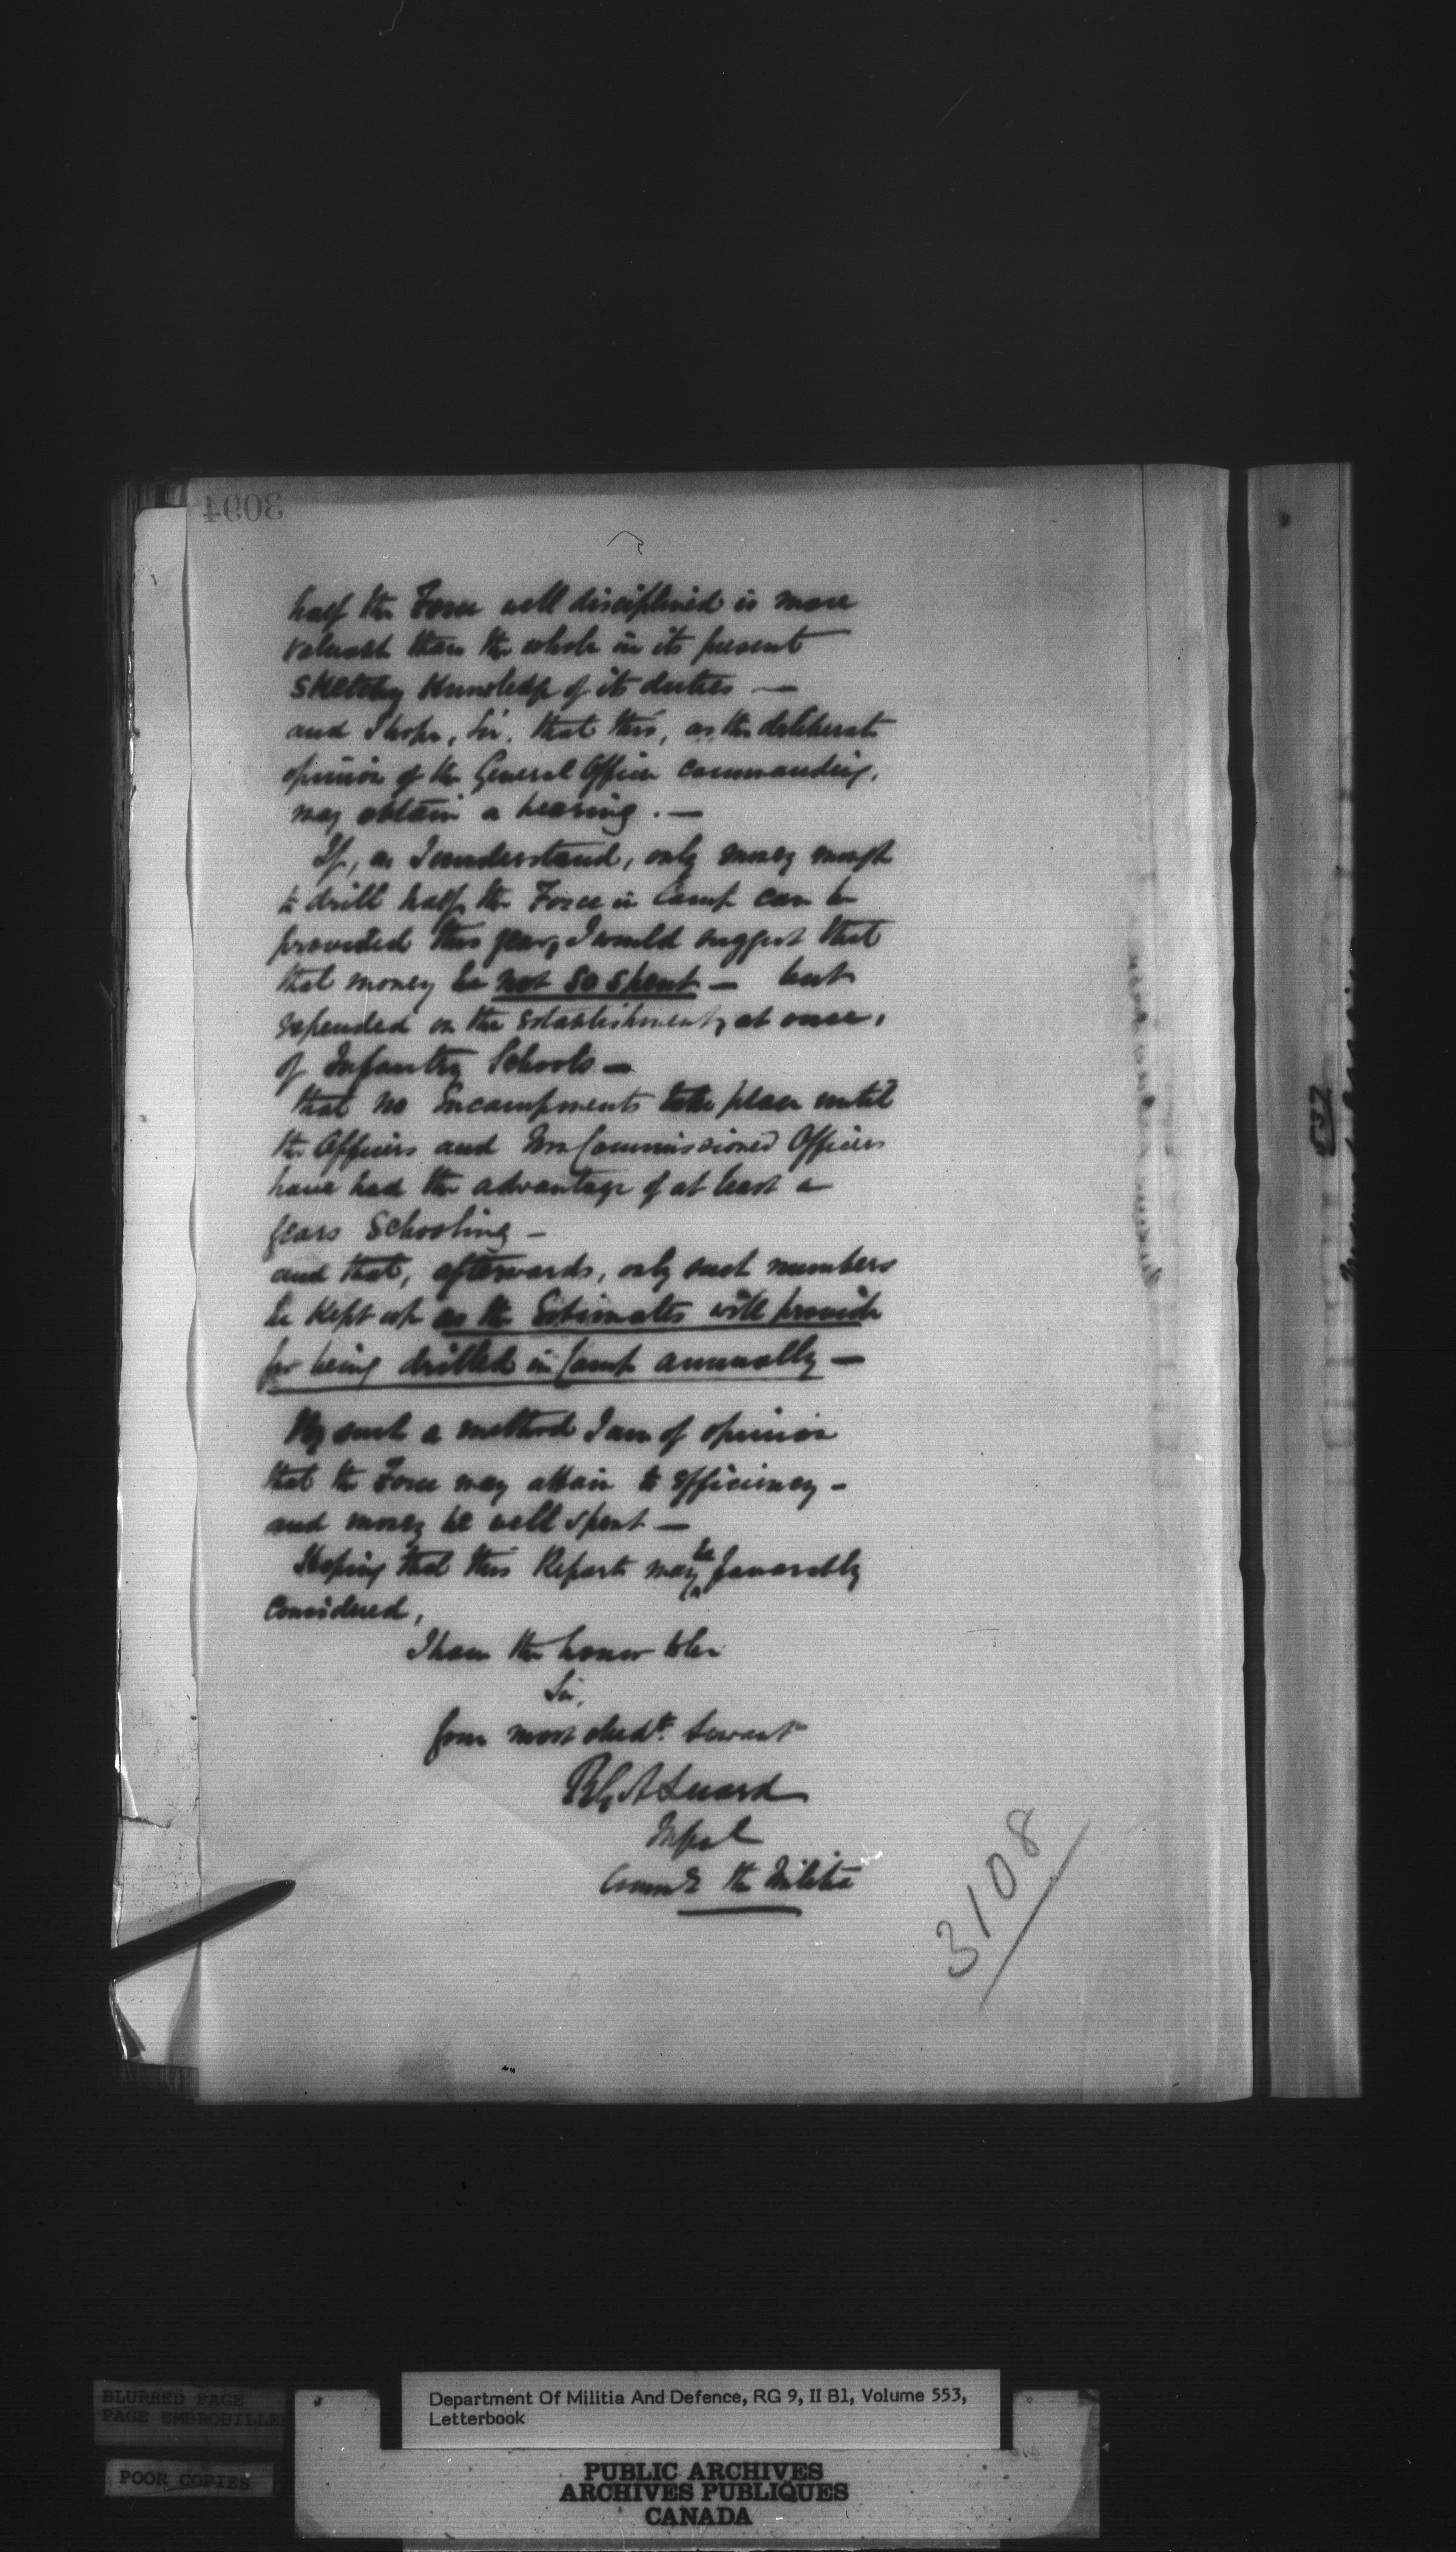 3094
half the Force well disciplined is more
valuable than the whole in its present
sketchy knowledge of its duties —
and I hope, Sir, that this, as the deliberate
opinion of the General Officer Commanding,
may obtain a hearing. —
If, as I understand, only money enough
to drill half the Force in Camp can be
provided this year, I would suggest that
that money be not so spent — but
expended on the establishment, at once,
of Infantry Schools —
that no Encampments take place until
the Officers and Non Commissioned Officers
have had the advantage of at least a
years schooling —
and that, afterwards, only such numbers
be kept up as the Estimates will provide
for being drilled in Camp annually —
By such a method I am of opinion
that the Force may attain to efficiency —
and money be well spent —
Hoping that this Report may be favorably
considered,
I have the honor to be
Sir,
Your most obedt. Servant
R G A Luard
M Genl
Commdg the Militia
3108
537
BLURRED PAGE
PAGE EMBROUILLEE
POOR COPIES
Department Of Militia And Defence, RG 9, II B1, Volume 553,
Letterbook
PUBLIC ARCHIVES
ARCHIVES PUBLIQUES
CANADA